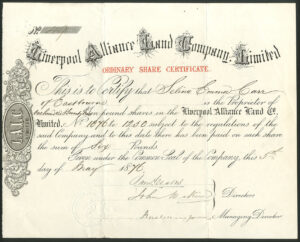 No
Liverpool Alliance Land Company, Limited
ORDINARY SHARE CERTIFICATE.
This is to Certify that Selina Emma Carr
of Eastbourne is the Proprietor of
pound shares in the Liverpool Alliance Land Co.
Limited, No to subject to the regulations of the
said Company, and to this date there has been paid on each share
the sum of Six Pounds
Given under the Common Seal of the Company, this
day of May 1876
Directors
Managing Director